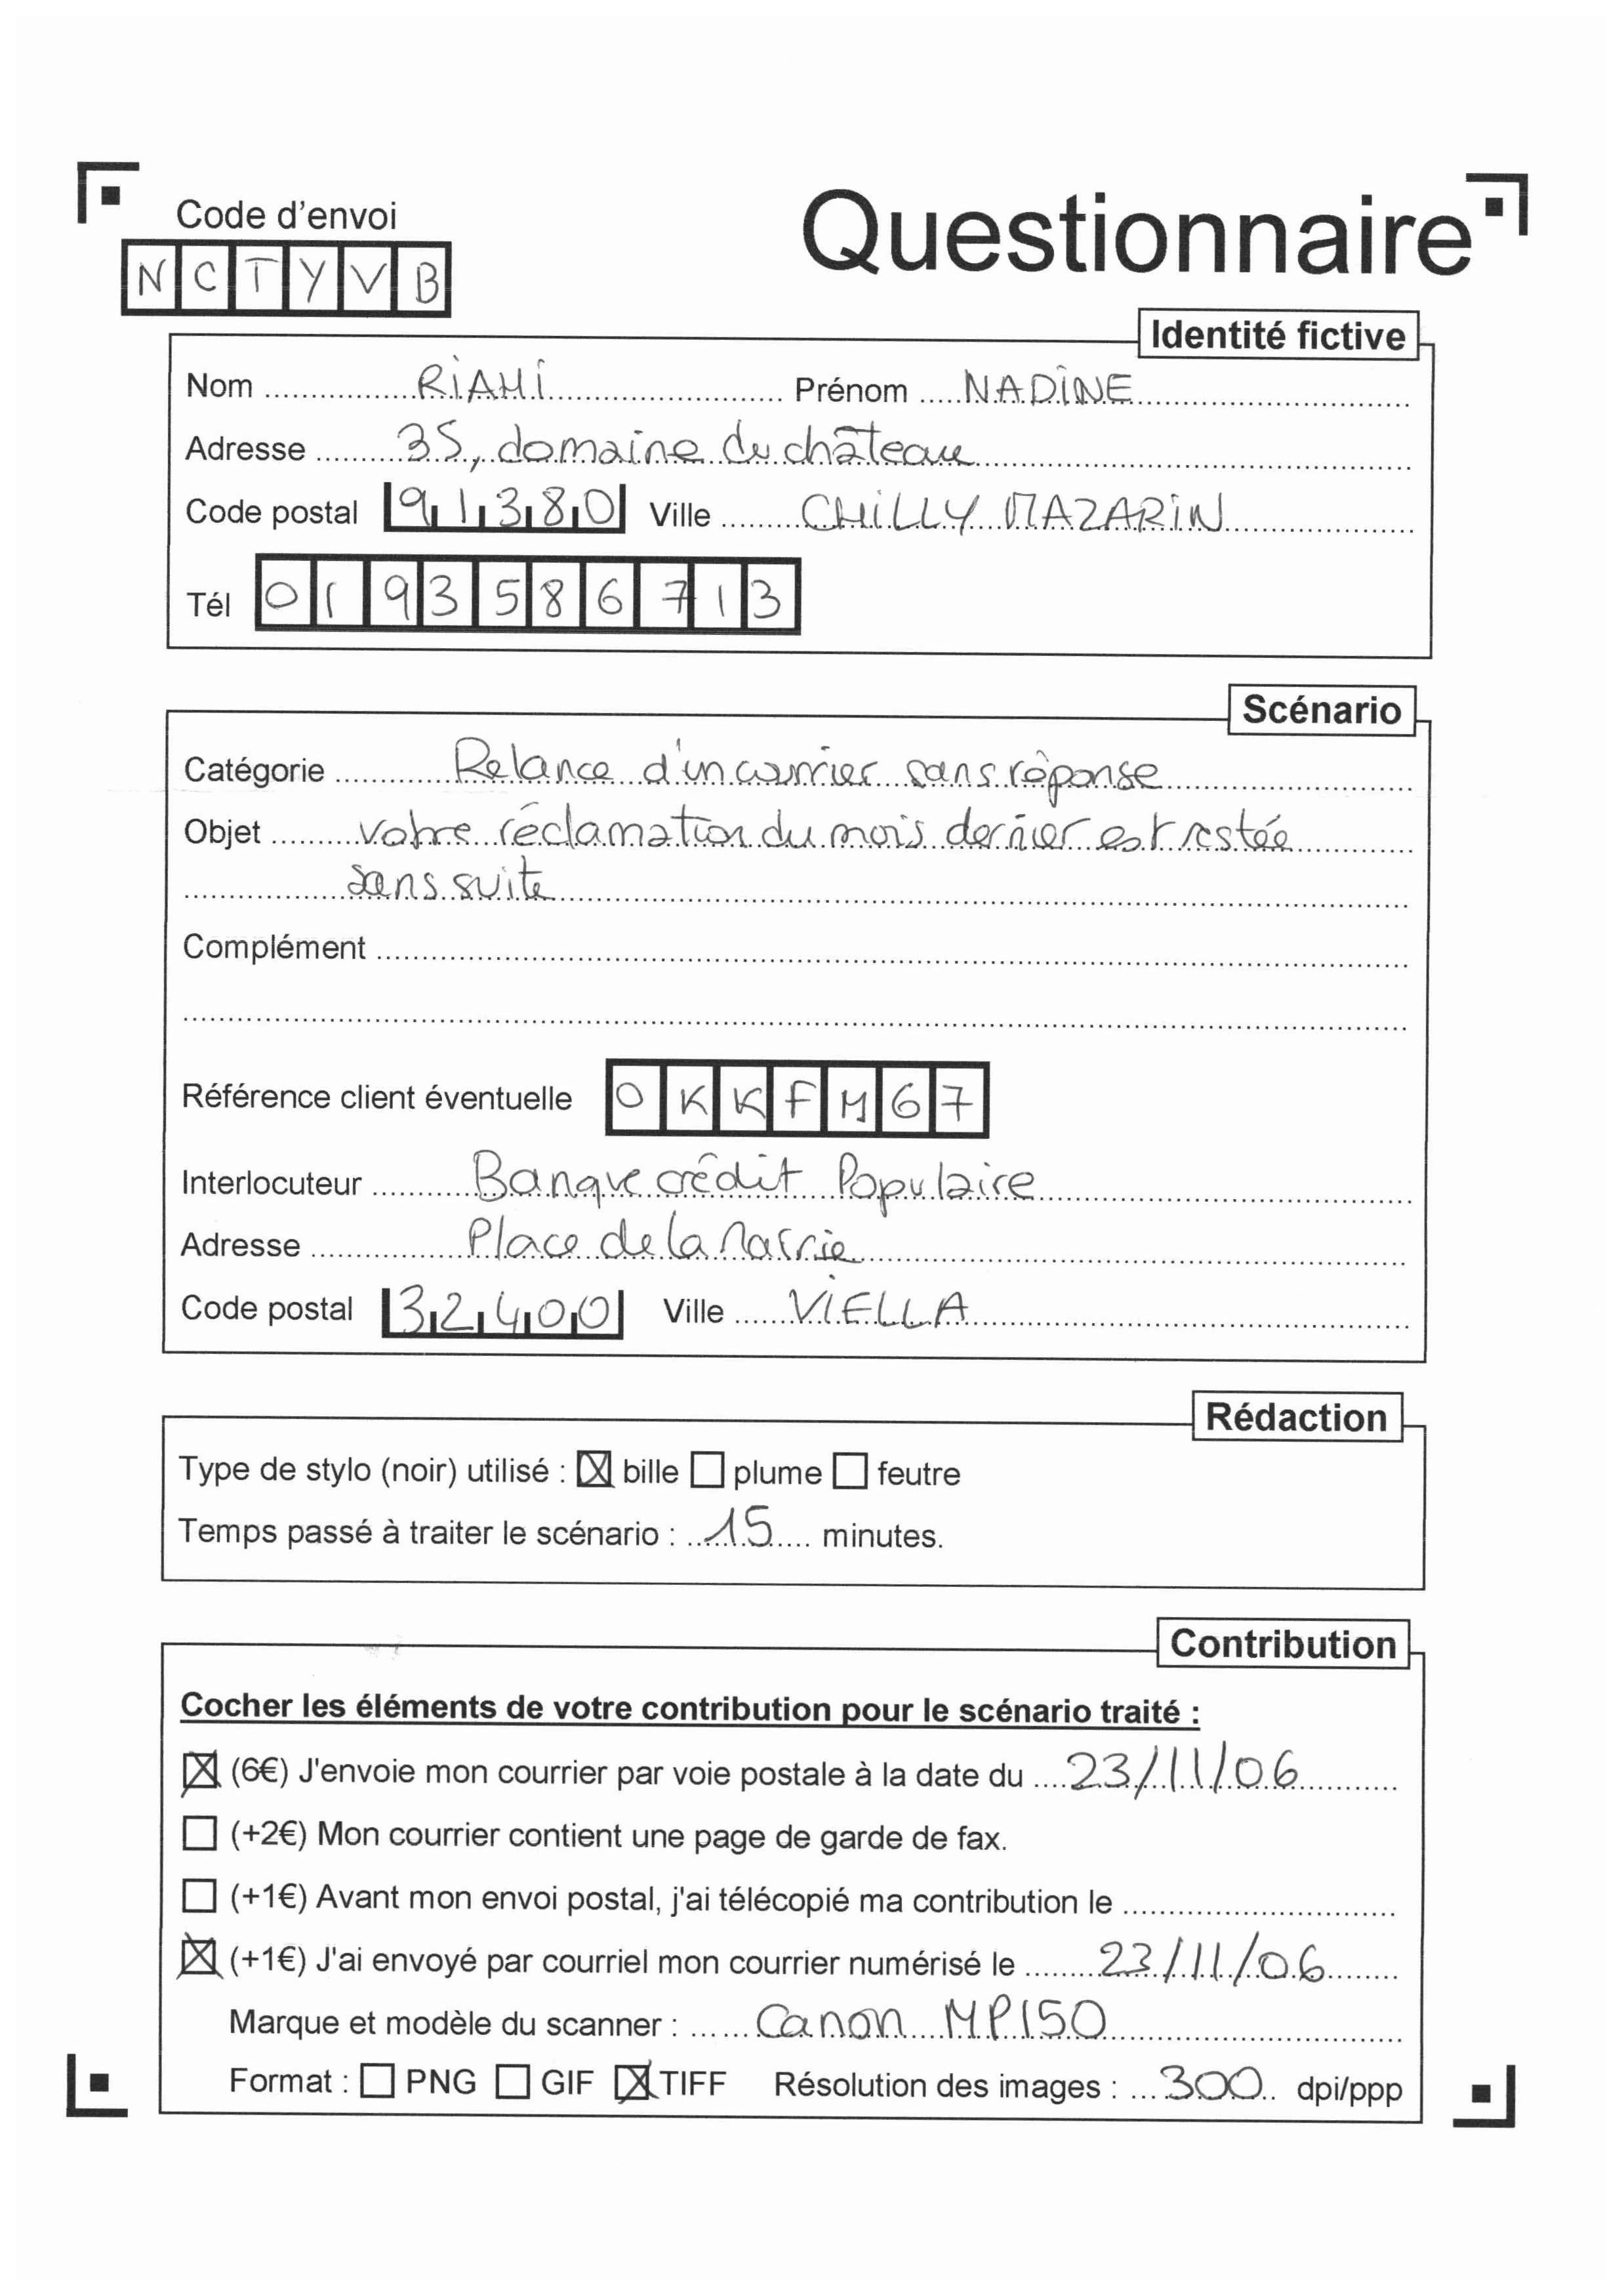 Code d'envoi
Questionnaire
NCTYVB
Identité fictive
Nom RiAHi Prénom NADiNE
Adresse 35, domaine du château
Code postal 91380 Ville CHiLLY MAZARiN
Tél 0193586713
Scénario
Catégorie Relance d'un courrier sans réponse
Objet votre réclamation du mois dernier est restée
sans suite
Complément
Référence client éventuelle OKKFM67
Interlocuteur Banque crédit Populaire
Adresse Place de la Mairie
Code postal 32400 Ville ViELLA
Rédaction
Type de stylo (noir) utilisé : ☒ bille ☐ plume ☐ feutre
Temps passé à traiter le scénario : 15 minutes.
Contribution
Cocher les éléments de votre contribution pour le scénario traité :
☒ (6€) J'envoie mon courrier par voie postale à la date du 23/11/06
☐ (+2€) Mon courrier contient une page de garde de fax.
☐ (+1€) Avant mon envoi postal, j'ai télécopié ma contribution le
☒ (+1€) J'ai envoyé par courriel mon courrier numérisé le 23/11/06
Marque et modèle du scanner : Canon MP150
Format : ☐ PNG ☐ GIF ☒ TIFF Résolution des images : 300 dpi/ppp